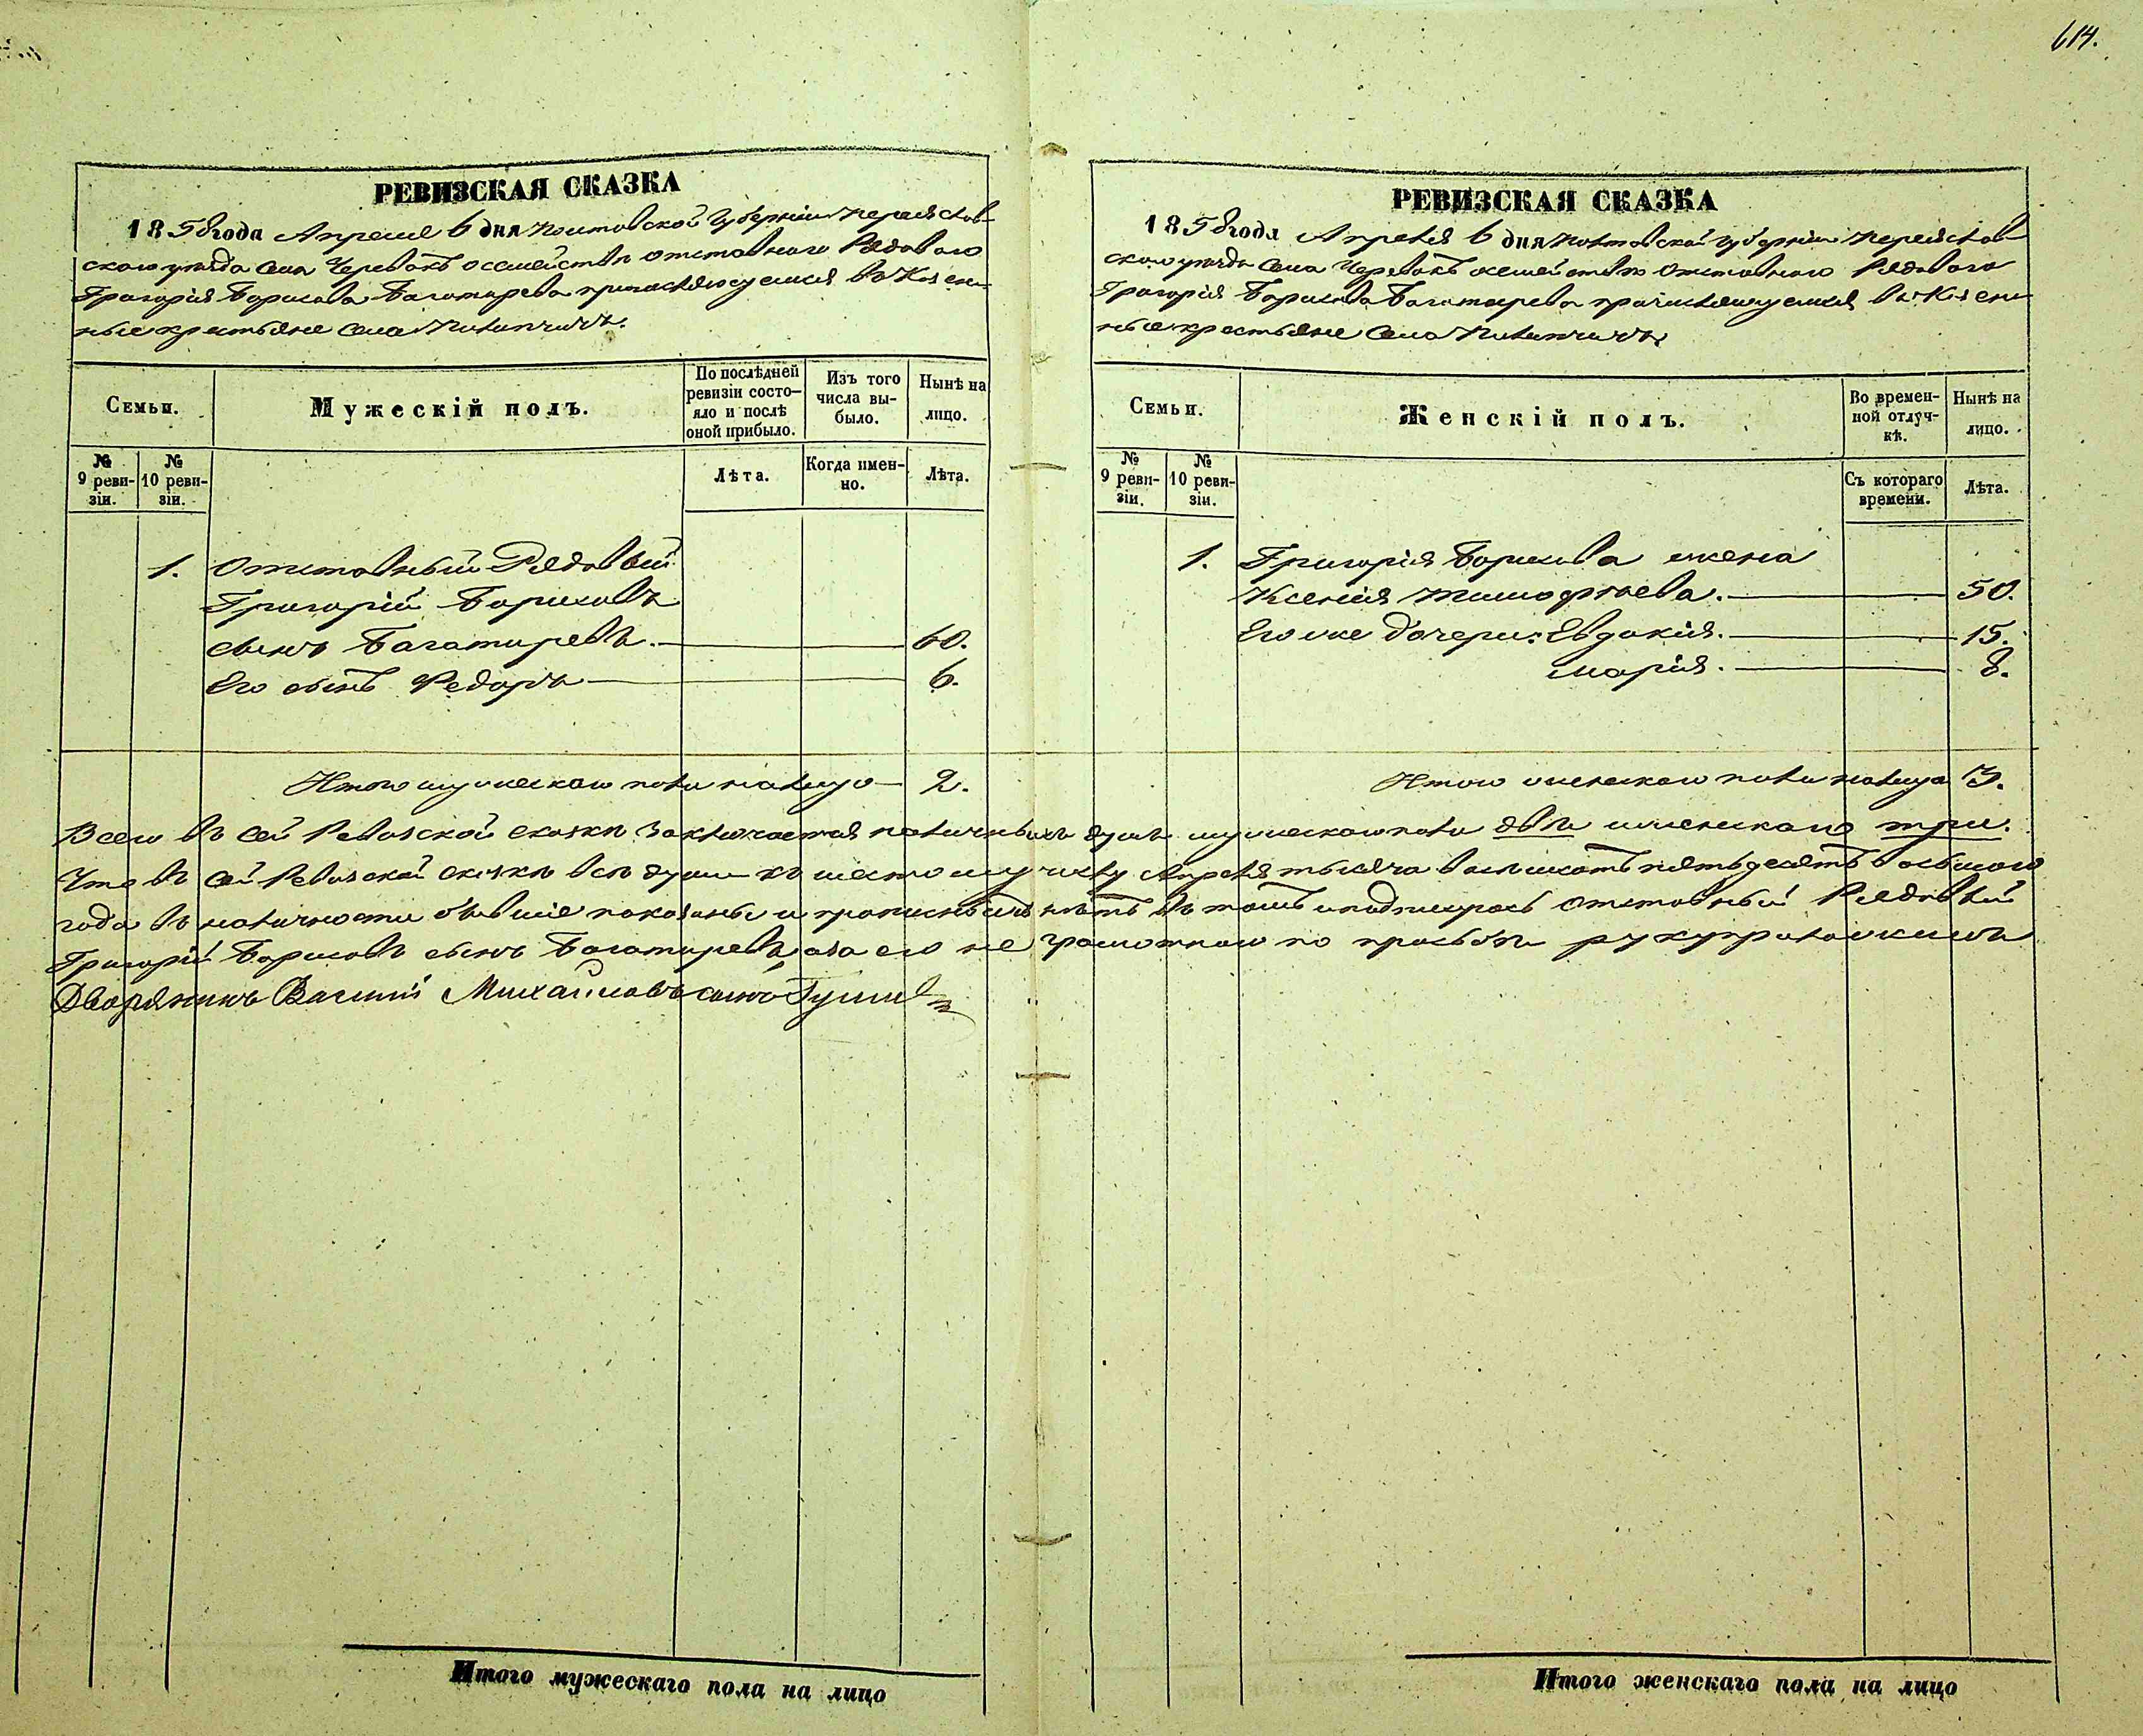 614.
РЕВИЗСКАЯ СКАЗКА
1858 года Апреля 6 дня Полтавской Губерніи Переяслав-
скаго уезда села Черевокъ о семействе отставнаго Рядоваго
Григорія Борисова Багатырева причисляющемся въ Казен-
ные крестьяне села
Семьи.
Мужескій полъ.
По послѣдней ревизіи состо-
яло и послѣ оной прибыло.
Изъ того числа вы-
было.
Нынѣ на лицо.
№ 9 реви-
зіи.
№ 10 реви-
зіи.
Лѣта.
Когда имен-
но.
Лѣта.
1. Отставный Рядовый
Григорій Борисовъ
сынъ Багатыревъ. 60.
Его сынъ Федоръ 6.
Итого мужескаго пола налицо 2.
РЕВИЗСКАЯ СКАЗКА
1858 года Апреля 6 дня Полтавской Губерніи Переяслав-
скаго уезда села Черевокъ о семействе Отставнаго Рядоваго
Григорія Борисова Багатырева причисляющемся въ Казен
ные крестьяне села
Семьи.
Женскій полъ.
Во времен-
ной отлуч-
кѣ.
Нынѣ на лицо.
№ 9 реви-
зіи.
№ 10 реви-
зіи.
Съ котораго времени.
Лѣта.
1. Григорія Борисова жена
Ксенія Тимофеева. 50.
Его же дочери: Евдокія. 15.
Марія. 8.
Итого женскаго пола налицо 3.
Всего въ сей Ревизской сказке заключается наличныхъ душъ мужескаго пола две женскаго три.
Что въ сей Ревизской сказке все души къ шестому числу Апреля тысяча восемьсотъ пятьдесятъ восьмого
года въ наличности бывшіе показаны и прописныхъ нетъ въ томъ и подпишусь Отставный Рядовый
Григорій Борисовъ сынъ Багатыревъ, а за его не грамотнаго по прозьбе руку приложилъ
Дворянинъ Василій Михайловъ сынъ
Итого мужескаго пола на лицо
Итого женскаго пола на лицо